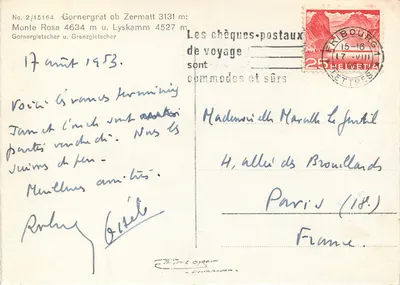 No. 2/15164 Gornergrat ob Zermatt 3131 m:
Monte Rosa 4634 m u. Lyskamm 4527 m
Gornergletscher u. Grenzgletscher
Les chèques-postaux
de voyage
sont
commodes et sûrs
FRIBOURG
15-18
17.VIII
LETTRES
25 HELVETIA
17 août 1953.
Voici les vacances terminées
Jan et sont
partis vendredi. Nous les
suivons de peu.
Meilleures amitiés.
Gisèle
Mademoiselle Marcelle Le Gentil
4, allée des Brouillards
Paris (18.)
France.